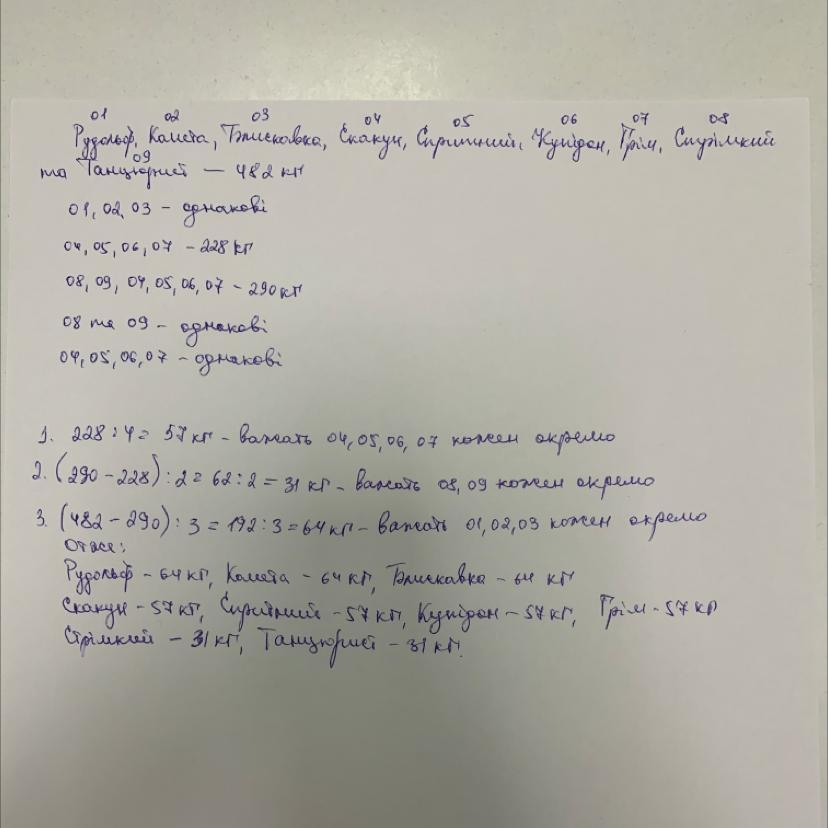 01 02 03 04 05 06 07 08
Рудольф, Комета, Блискавка, Скакун, Спритний, Купідон, Грім, Стрімкий
09
та Танцюрист — 482 кг
01, 02, 03 - однакові
04, 05, 06, 07 - 228 кг
08, 09, 04, 05, 06, 07 - 290 кг
08 та 09 - однакові
04, 05, 06, 07 - однакові
1. 228 : 4 = 57 кг - важать 04, 05, 06, 07 кожен окремо
2. (290 - 228) : 2 = 62 : 2 = 31 кг - важать 08, 09 кожен окремо
3. (482 - 290) : 3 = 192 : 3 = 64 кг - важать 01, 02, 03 кожен окремо
Отже:
Рудольф - 64 кг, Комета - 64 кг, Блискавка - 64 кг
Скакун - 57 кг, Спритний - 57 кг, Купідон - 57 кг, Грім - 57 кг
Стрімкий - 31 кг, Танцюрист - 31 кг.